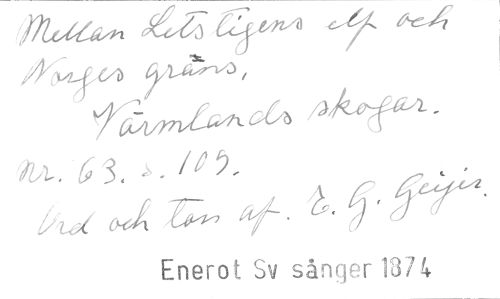 Mellan Letstigens elf och
Norges gräns,
Värmlands skogar.
nr. 63. s. 109.
Ord och ton af. E. G. Geijer.
Enerot Sv sånger 1874